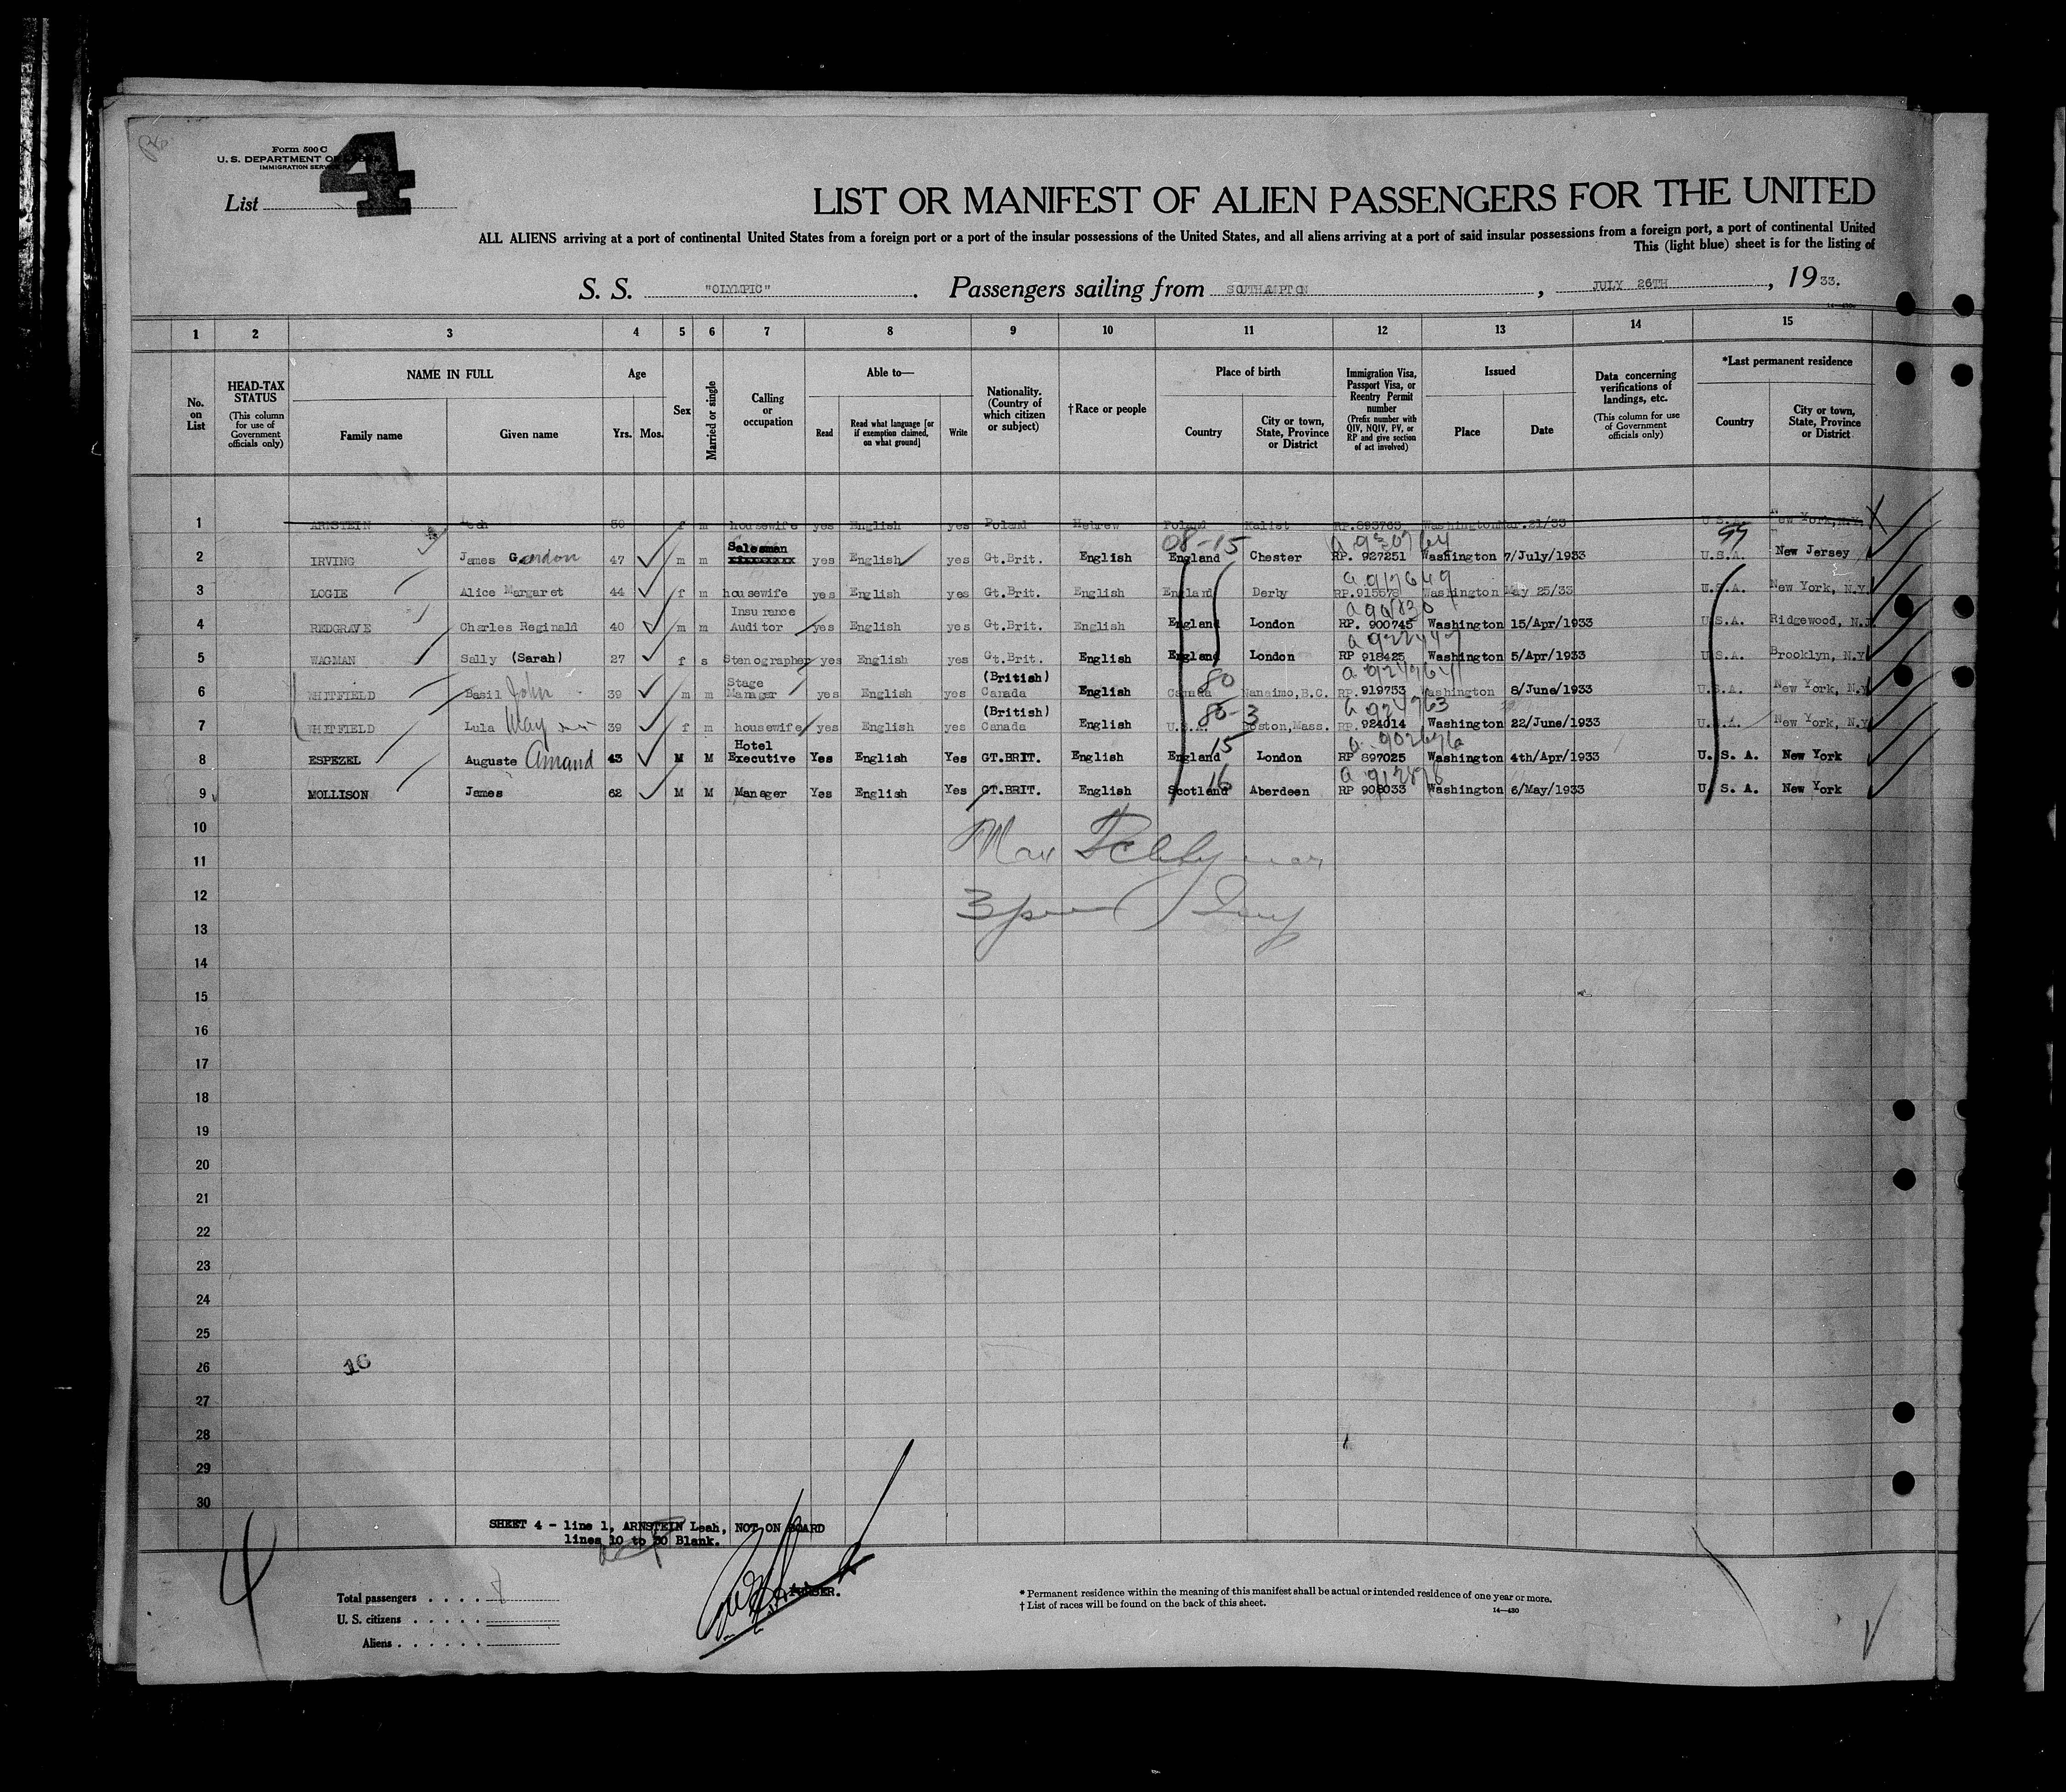 Form 500 C
U. S. DEPARTMENT OF
IMMIGRATION SERVICE
4
List
LIST OR MANIFEST OF ALIEN PASSENGERS FOR THE UNITED
ALL ALIENS arriving at a port of continental United States from a foreign port or a port of the insular possessions of the United States, and all aliens arriving at a port of said insular possessions from a foreign port, a port of continental United
This (light blue) sheet is for the listing of
S. S. "OLYMPIC". Passengers sailing from SOUTHAMPTON, JULY 26TH, 1933.
1 2 3 4 5 6 7 8 9 10 11 12 13 14 15
No. on List
HEAD-TAX STATUS (This column for use of Government officials only)
NAME IN FULL Family name Given name
Age Yrs. Mos.
Sex
Married or single
Calling or occupation
Able to— Read Read what language [or if exemption claimed, on what ground] Write
Nationality. (Country of which citizen or subject)
† Race or people
Place of birth Country City or town, State, Province or District
Immigration Visa, Passport Visa, or Reentry Permit number (Prefix number with QIV, NQIV, PV, or RP and give section of act involved)
Issued Place Date
Data concerning verifications of landings, etc. (This column for use of Government officials only)
*Last permanent residence Country City or town, State, Province or District
1 ARNSTEIN Leah 50 f m housewife yes English yes Poland Hebrew Poland Kalist RP.893763 Washington Mar.21/33 U.S.A. New York, N.Y. X
08-15 99
2 IRVING James Gordon 47 m m Salesman yes English yes Gt.Brit. English England Chester RP. 927251 Washington 7/July/1933 U.S.A. New Jersey
a 917649
3 LOGIE Alice Margaret 44 f m housewife yes English yes Gt.Brit. English England Derby RP.915578 Washington May 25/33 U.S.A. New York, N.Y.
4 REDGRAVE Charles Reginald 40 m m Insurance Auditor yes English yes Gt.Brit. English England London RP. 900745 Washington 15/Apr/1933 U.S.A. Ridgewood, N.J.
5 WAGMAN Sally (Sarah) 27 f s Stenographer yes English yes Gt.Brit. English England London RP 918425 Washington 5/Apr/1933 U.S.A. Brooklyn, N.Y.
80
6 WHITFIELD Basil John 39 m m Stage Manager yes English yes (British) Canada English Canada Nanaimo, B.C. RP. 919753 Washington 8/June/1933 U.S.A. New York, N.Y.
80-3 a 924763
7 WHITFIELD Lula May 39 f m housewife yes English yes (British) Canada English U.S.A. Boston, Mass. RP. 924014 Washington 22/June/1933 U.S.A. New York, N.Y.
15 a 902676
8 ESPEZEL Auguste Amand 43 M M Hotel Executive Yes English Yes GT.BRIT. English England London RP 897025 Washington 4th/Apr/1933 U. S. A. New York
16 a 912878
9 MOLLISON James 62 M M Manager Yes English Yes GT.BRIT. English Scotland Aberdeen RP 908033 Washington 6/May/1933 U. S. A. New York
10
11
12
13
14
15
16
17
18
19
20
21
22
23
24
25
26
16
27
28
29
30
SHEET 4 - line 1, ARNSTEIN Leah, NOT ON BOARD
lines 10 to 30 Blank.
4
PURSER.
Total passengers
U. S. citizens
Aliens
* Permanent residence within the meaning of this manifest shall be actual or intended residence of one year or more.
† List of races will be found on the back of this sheet.
14—430